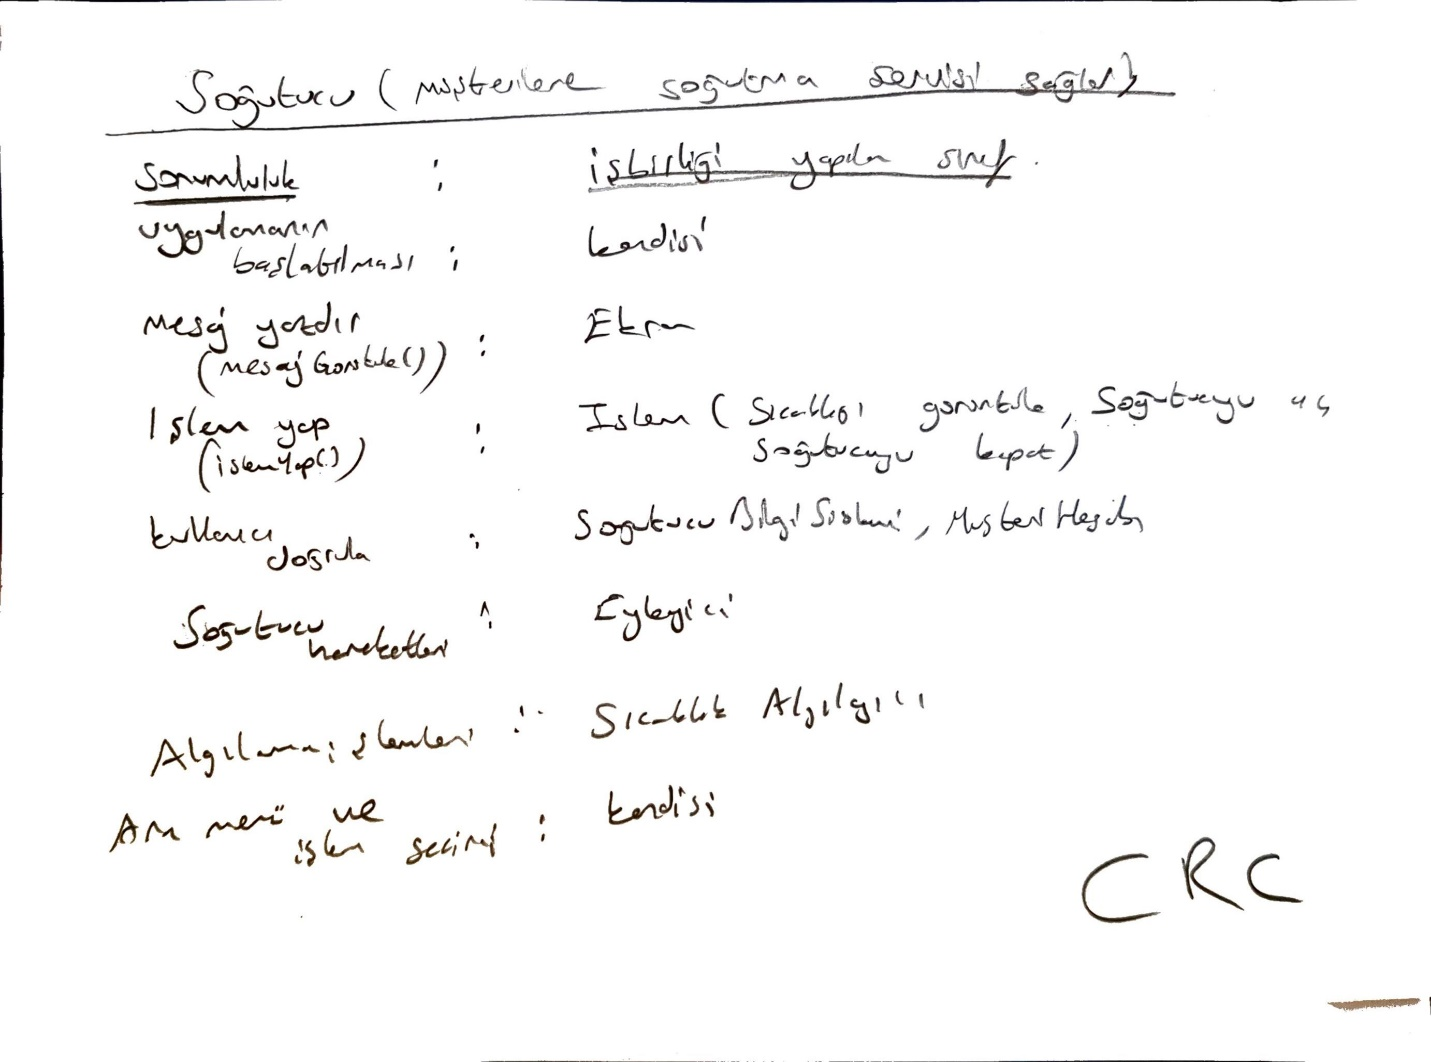 Soğutucu (müşterilere soğutma servisi sağlar)
Sorumluluk : işbirliği yapılan sınıf.
uygulamanın
başlatılması : kendisi
mesaj yazdır : Ekran
(mesajGoruntule())
Işlem yap : Islem (Sıcaklığı goruntule, Soğutucuyu aç
(islemYap()) Soğutucuyu kapat)
kullanıcı
doğrula : Sogutucu Bilgi Sistemi, Musteri Hesabı
Soğutucu
hareketleri : Eyleyici
Algılama işlemleri : Sıcaklık Algılayıcı
Ana menü ve
işlem seçimi : kendisi
CRC